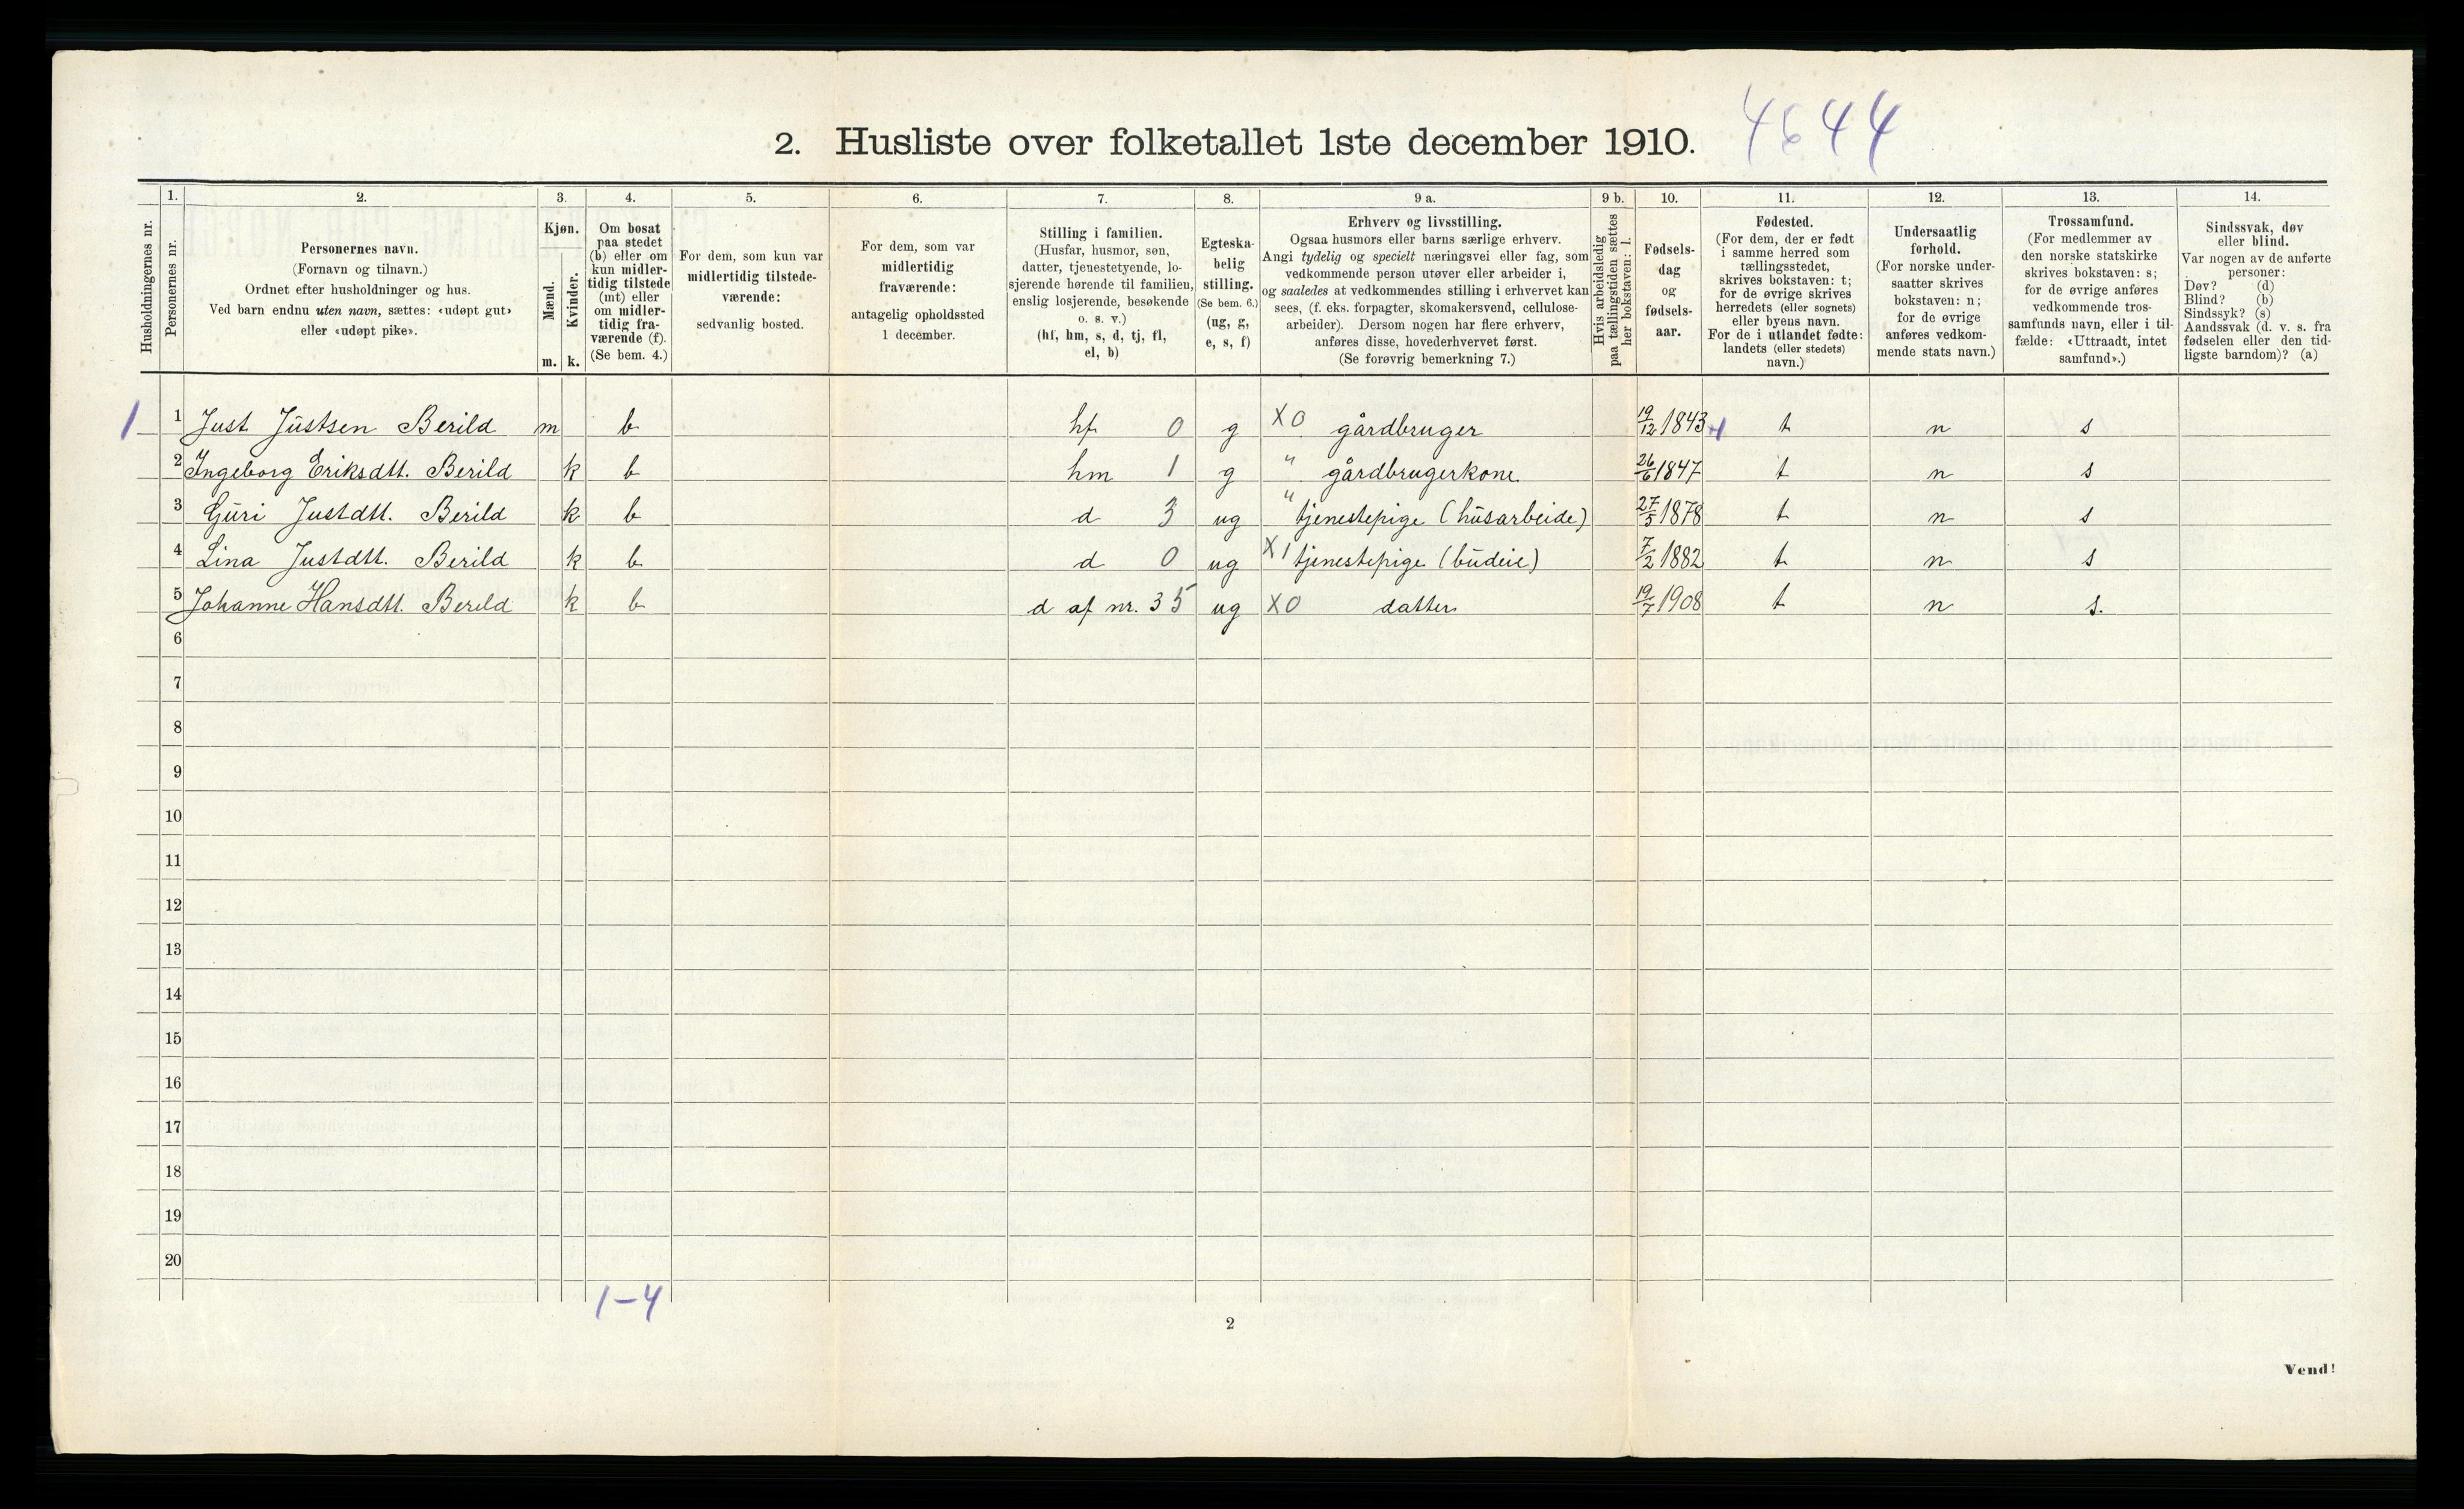 2. Husliste over folketallet 1ste december 1910. 4644
Husholdningernes nr.
1.
Personernes nr.
2.
Personernes navn.
(Fornavn og tilnavn.)
Ordnet efter husholdninger og hus.
Ved barn endnu uten navn, sættes: «udøpt gut»
eller «udøpt pike».
3.
Kjøn.
Mænd.
Kvinder.
m. k.
4.
Om bosat
paa stedet
(b) eller om
kun midler-
tidig tilstede
(mt) eller
om midler-
tidig fra-
værende (f).
(Se bem. 4.)
5.
For dem, som kun var
midlertidig tilstede-
værende:
sedvanlig bosted.
6.
For dem, som var
midlertidig
fraværende:
antagelig opholdssted
1 december.
7.
Stilling i familien.
(Husfar, husmor, søn,
datter, tjenestetyende, lo-
sjerende hørende til familien,
enslig losjerende, besøkende
o. s. v.)
(hf, hm, s, d, tj, fl,
el, b)
8.
Egteska-
belig
stilling.
(Se bem. 6.)
(ug, g,
e, s, f)
9 a.
Erhverv og livsstilling.
Ogsaa husmors eller barns særlige erhverv.
Angi tydelig og specielt næringsvei eller fag, som
vedkommende person utøver eller arbeider i,
og saaledes at vedkommendes stilling i erhvervet kan
sees, (f. eks. forpagter, skomakersvend, cellulose-
arbeider). Dersom nogen har flere erhverv,
anføres disse, hovederhvervet først.
(Se forøvrig bemerkning 7.)
9 b.
Hvis arbeidsledig
paa tællingstiden sættes
her bokstaven: l.
10.
Fødsels-
dag
og
fødsels-
aar.
11.
Fødested.
(For dem, der er født
i samme herred som
tællingsstedet,
skrives bokstaven: t;
for de øvrige skrives
herredets (eller sognets)
eller byens navn.
For de i utlandet fødte:
landets (eller stedets)
navn.)
12.
Undersaatlig
forhold.
(For norske under-
saatter skrives
bokstaven: n;
for de øvrige
anføres vedkom-
mende stats navn.)
13.
Trossamfund.
(For medlemmer av
den norske statskirke
skrives bokstaven: s;
for de øvrige anføres
vedkommende tros-
samfunds navn, eller i til-
fælde: «Uttraadt, intet
samfund».)
14.
Sindssvak, døv
eller blind.
Var nogen av de anførte
personer:
Døv? (d)
Blind? (b)
Sindssyk? (s)
Aandssvak (d. v. s. fra
fødselen eller den tid-
ligste barndom)? (a)
1 1 Just Justsen Berild m b hf 0 g X0 gårdbruger 19/12 1843 t n s
2 Ingeborg Eriksdtt. Berild k b hm 1 g " gårdbrugerkone 26/6 1847 t n s
3 Guri Justdtt. Berild k b d 3 ug " tjenestepige (husarbeide) 27/5 1878 t n s
4 Lina Justdtt. Berild k b d 0 ug X1 tjenestepige (budeie) 7/2 1882 t n s
5 Johanne Hansdtt. Berild k b d af nr. 3 5 ug X0 datter 19/7 1908 t n s.
6
7
8
9
10
11
12
13
14
15
16
17
18
19
20
1-4
2
Vend!